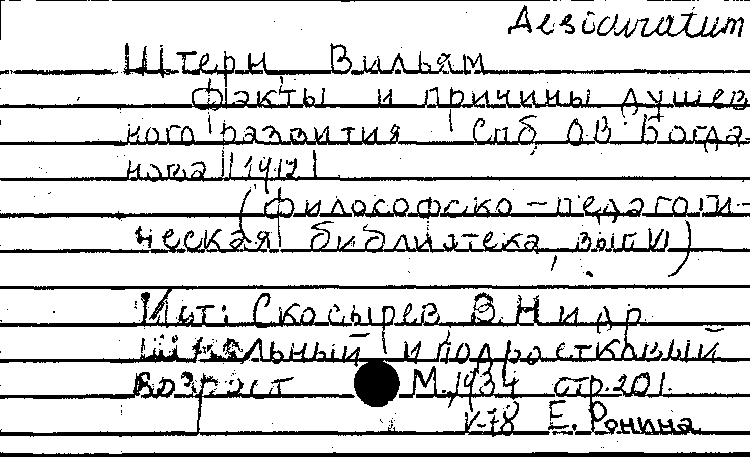 Desiduratum
Штерн, Вильям
факты и причины душев
ного развития Спб, О.В. Богда
нова 1912
(философско-педагоги-
ческая библиятека, вып VI)
Ист: Скосырев В.Н и др
Школьный и подростковый
возраст М., 1934 стр. 201.
V-78 Е. Ронина